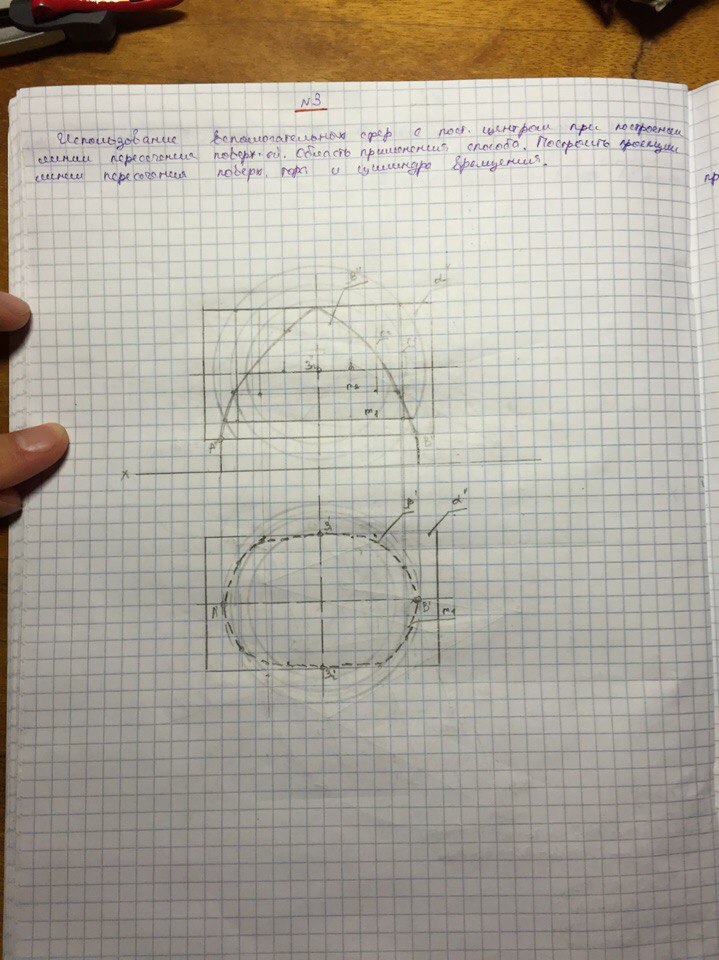 №3
Использование вспомогательных сфер с пост. центром при построении
линии пересечения поверх-ей. Область применения способа. Построить проекции
линии пересечения поверх. тора и цилиндра вращения.
пр
B" α"
m₂
m₁
A" B"
x
3' β' α'
A' B' m₁
3₁'